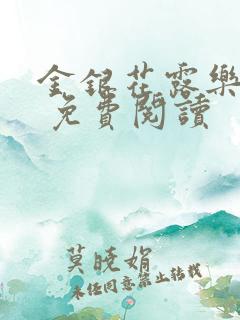 金銀花露樂
免費閱讀
莫曉娟
未经同意禁止转载